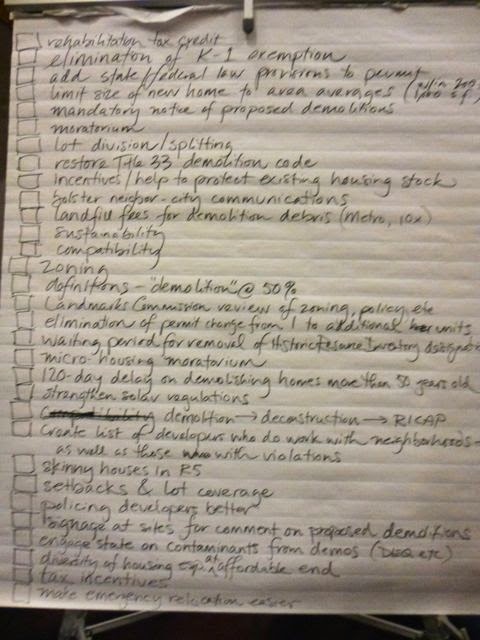 rehabilitation tax credit
elimination of K-1 exemption
add state/federal law provisions to permit
limit size of new home to area averages (
mandatory notice of proposed demolitions
moratorium
lot division/splitting
restore Title 33 demolition code
incentives/help to protect existing housing stock
bolster neighbor-city communications
landfill fees for demolition debris (Metro, 10x)
sustainability
compatibility
zoning
definitions - "demolition" @ 50%
Landmarks Commission review of zoning, policy, etc
elimination of permit change from 1 to additional units
waiting period for removal of Historic Resource Inventory designation
micro-housing moratorium
120-day delay on demolishing homes more than 50 years old
strengthen solar regulations
demolition → deconstruction → RICAP
Create list of developers who do work with neighborhoods -
as well as those with violations
skinny houses in R5
setbacks & lot coverage
policing developers better
signage at sites for comment on proposed demolitions
engage state on contaminants from demos (DEQ etc)
diversity of housing esp. at affordable end
tax incentives
make emergency relocation easier